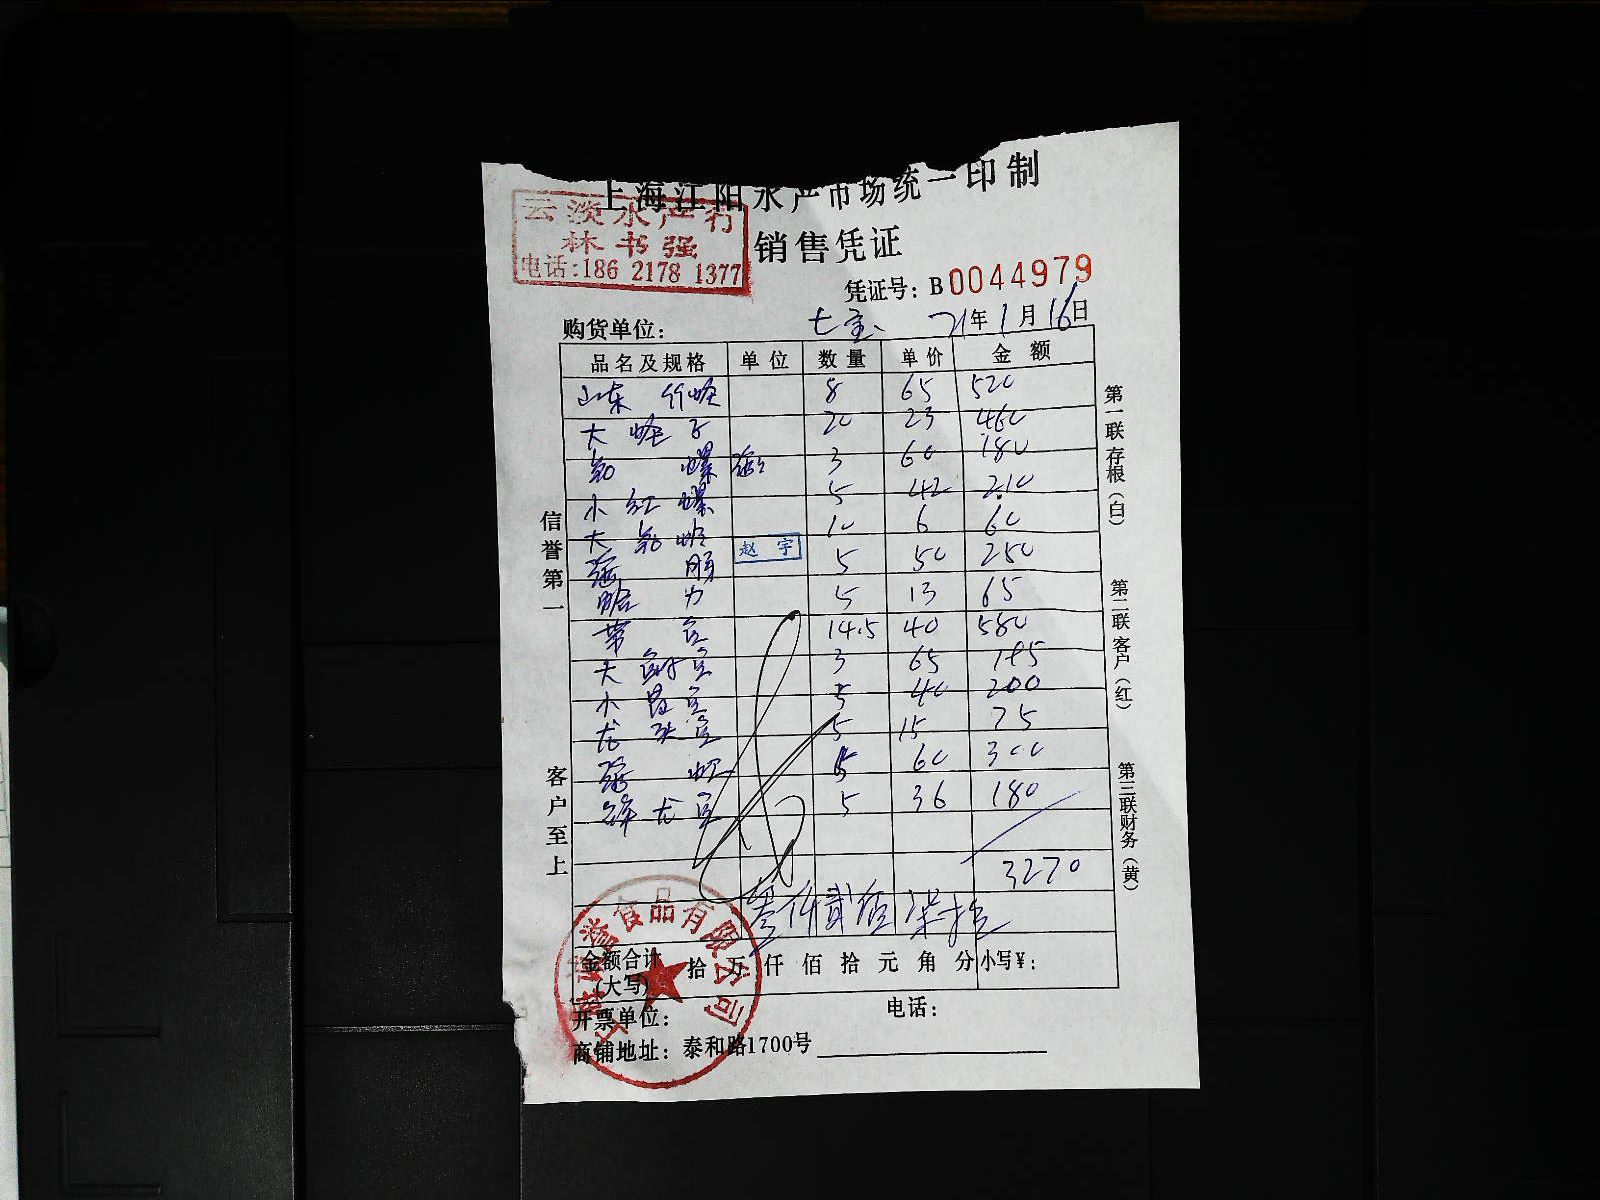 上海江阳水产市场统一印制
云淡水产行
林书强
电话:186 2178 1377
销售凭证
凭证号: B0044979
购货单位: 七宝 21年1月16日
品名及规格 单位 数量 单价 金额
山东 竹蛏 8 65 520
大蛏子 20 23 460
螺 3 60 180
小红螺 5 42 210
大 10 6 60
赵宇
5 50 250
5 13 65
带 14.5 40 580
大 3 65 195
小 5 40 200
龙头 5 15 75
虾 5 60 300
龙 5 36 180
3270
叁仟贰佰柒拾
金额合计(大写) 拾 万 仟 佰 拾 元 角 分 小写¥:
开票单位: 电话:
商铺地址: 泰和路1700号
信誉第一
客户至上
第一联存根(白)
第二联客户(红)
第三联财务(黄)
食品有限公司